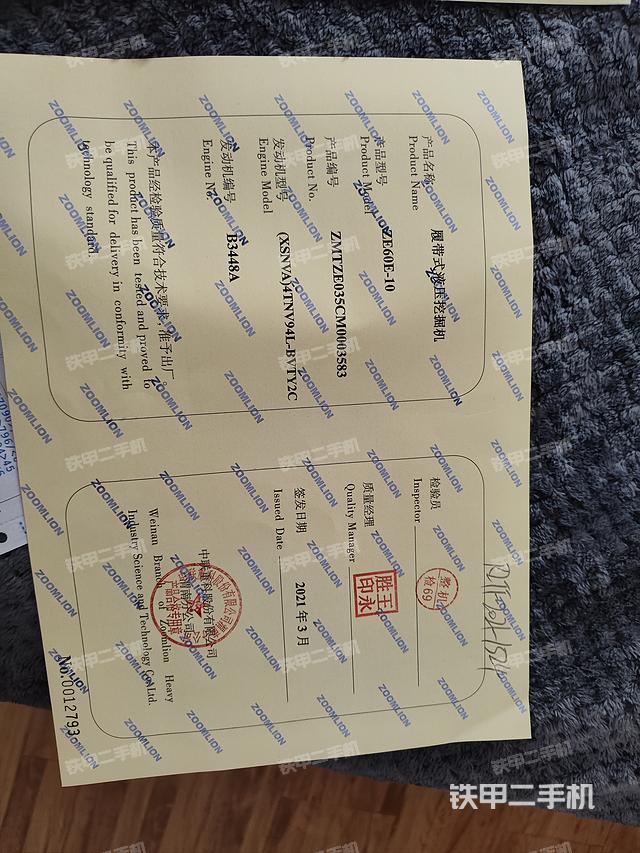 产品名称 履带式液压挖掘机
Product Name
产品型号 ZE60E-10
Product Model
产品编号 ZMTZE035CM0003583
Product No.
发动机型号 (XSNVA)4TNV94L-BVTY2C
Engine Model
发动机编号 B3448A
Engine No.
本产品经检验质量符合技术要求,准予出厂。
This product has been tested and proved to
be qualified for delivery in conformity with
technology standard.
检验员
Inspector
整机
检69
质量经理
Quality Manager
王永胜印
签发日期 2021年3月
Issued Date
中联重科股份有限公司
渭南分公司
Weinan Branch of Zoomlion Heavy
Industry Science and Technology Co.Ltd.
产品合格专用章
No.0012793
ZOOMLION
铁甲二手机